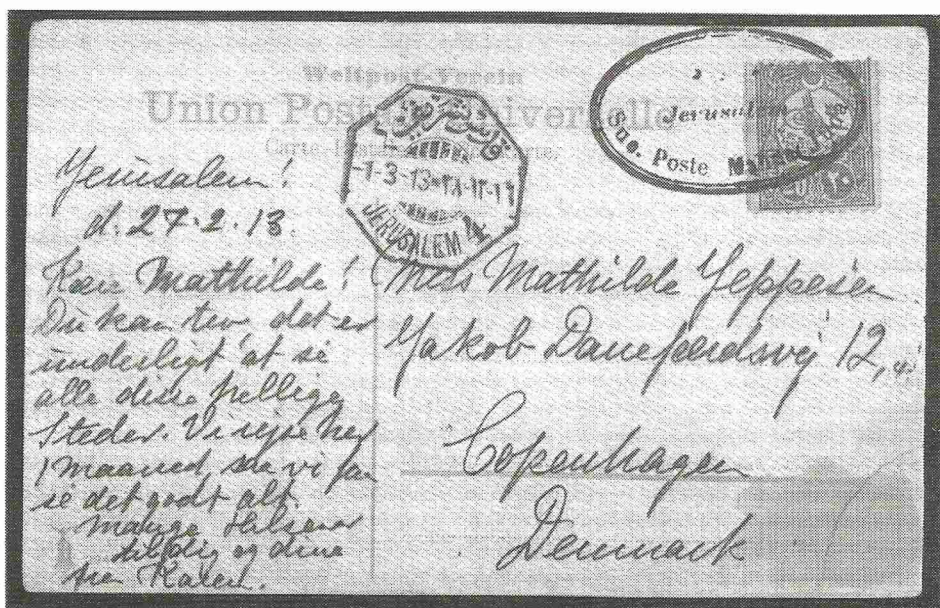 Weltpost-Verein
Union Postale Universelle
Jerusalem
Suc. Poste
-1-3-13
JERUSALEM 4
20
Jerusalem!
d. 27.2.13.
Kære Mathilde!
Du kan tro, det er
underligt at se
alle disse hellige
Steder. Vi rejse her
1 maaned, saa vi faa
se det godt alt.
Mange Hilsener
til dig og dine
fra Karen.
Miss Mathilde Jeppesen
Jakob Danefærdsvej 12,
Copenhagen
Denmark